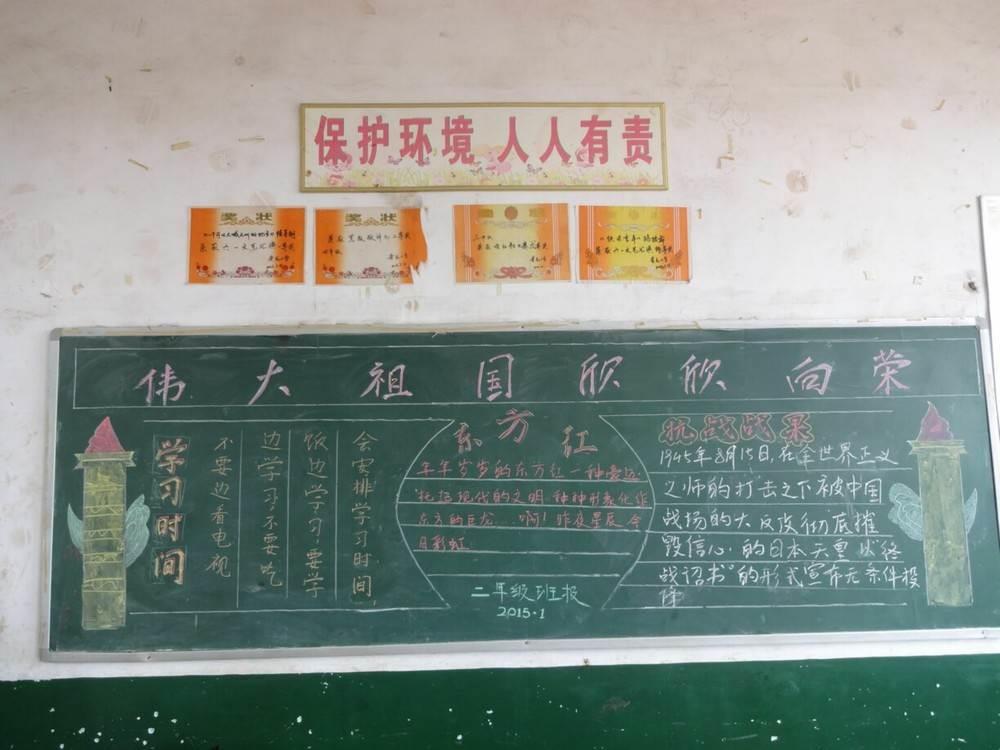 保护环境 人人有责
奖状
荣获六一文艺汇演一等奖
奖状
荣获
四年级
二等奖
荣获六一文艺汇演
伟大祖国欣欣向荣
学习时间
不要边看电视
边学习,不要吃
饭边学习,要学
会安排学习时间,
东方红
年年岁岁的东方红一种豪迈
托起现代的文明,种种形象化作
东方的巨龙...啊!昨夜星辰今
日彩虹.
二年级班报
2015·1
抗战战果
1945年8月15日,在全世界正义
之师的打击之下被中国
战场的大反攻彻底摧
毁信心.的日本天皇以终
战诏书"的形式宣布无条件投
降